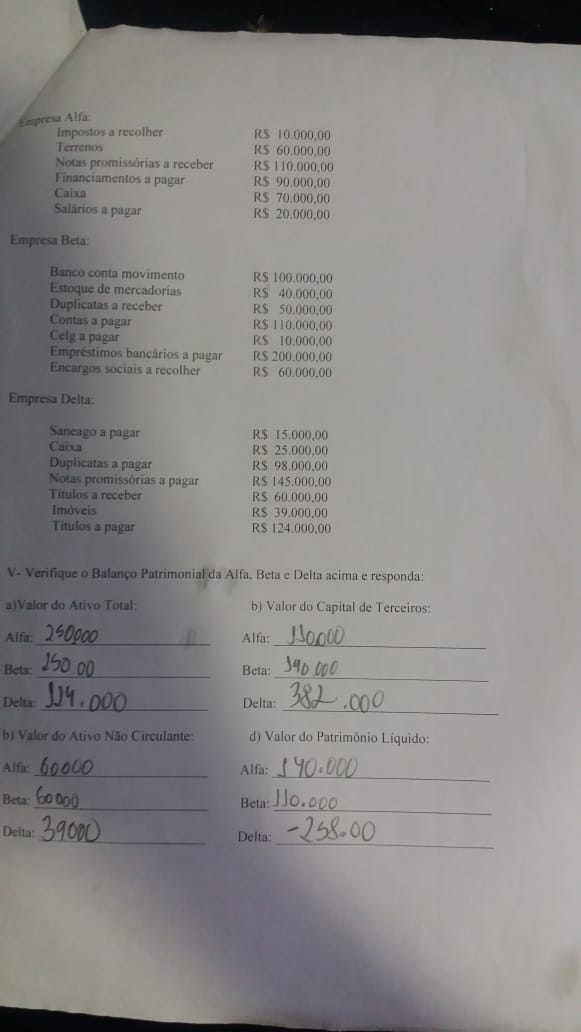 Empresa Alfa:
Impostos a recolher R$ 10.000,00
Terrenos R$ 60.000,00
Notas promissórias a receber R$ 110.000,00
Financiamentos a pagar R$ 90.000,00
Caixa R$ 70.000,00
Salários a pagar R$ 20.000,00
Empresa Beta:
Banco conta movimento R$ 100.000,00
Estoque de mercadorias R$ 40.000,00
Duplicatas a receber R$ 50.000,00
Contas a pagar R$ 110.000,00
Celg a pagar R$ 10.000,00
Empréstimos bancários a pagar R$ 200.000,00
Encargos sociais a recolher R$ 60.000,00
Empresa Delta:
Saneago a pagar R$ 15.000,00
Caixa R$ 25.000,00
Duplicatas a pagar R$ 98.000,00
Notas promissórias a pagar R$ 145.000,00
Títulos a receber R$ 60.000,00
Imóveis R$ 39.000,00
Títulos a pagar R$ 124.000,00
V- Verifique o Balanço Patrimonial da Alfa, Beta e Delta acima e responda:
a)Valor do Ativo Total: b) Valor do Capital de Terceiros:
Alfa: Alfa: 110000
Beta: Beta:
Delta: 124.000 Delta: 382.000
b) Valor do Ativo Não Circulante: d) Valor do Patrimônio Líquido:
Alfa: 60000 Alfa: 140.000
Beta: 60000 Beta: 110.000
Delta: 39000 Delta: -258.00